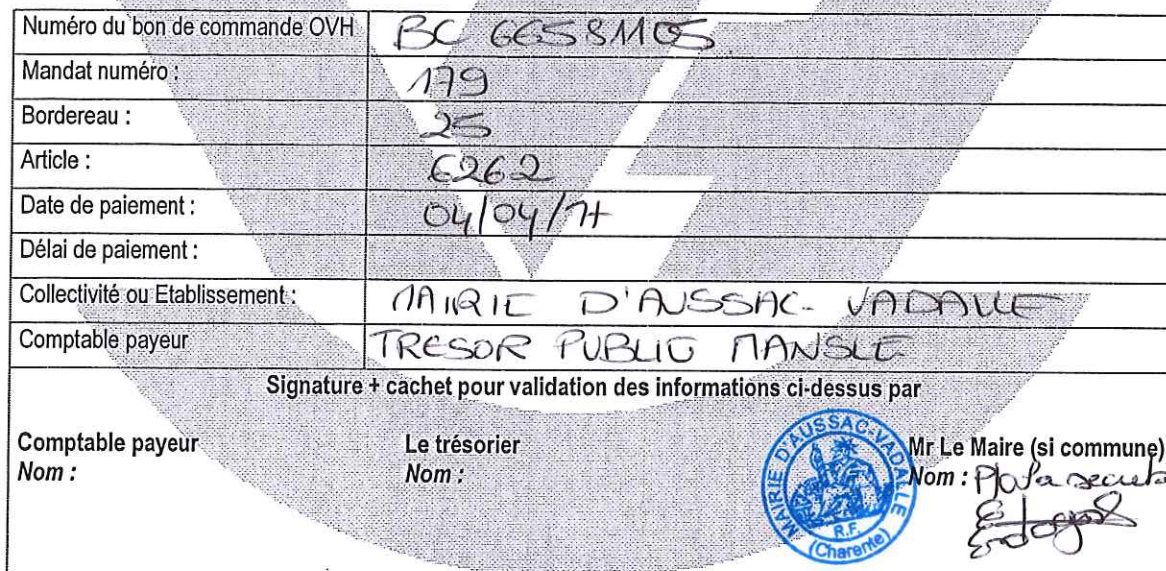 Numéro du bon de commande OVH BC 66581105
Mandat numéro : 179
Bordereau : 25
Article : 6262
Date de paiement : 04/04/17
Délai de paiement :
Collectivité ou Etablissement : MAIRIE D'AUSSAC-VADALLE
Comptable payeur TRESOR PUBLIC MANSLE
Signature + cachet pour validation des informations ci-dessus par
Comptable payeur Le trésorier Mr Le Maire (si commune)
Nom : Nom : Nom :
MAIRIE D'AUSSAC-VADALLE
R.F.
(Charente)